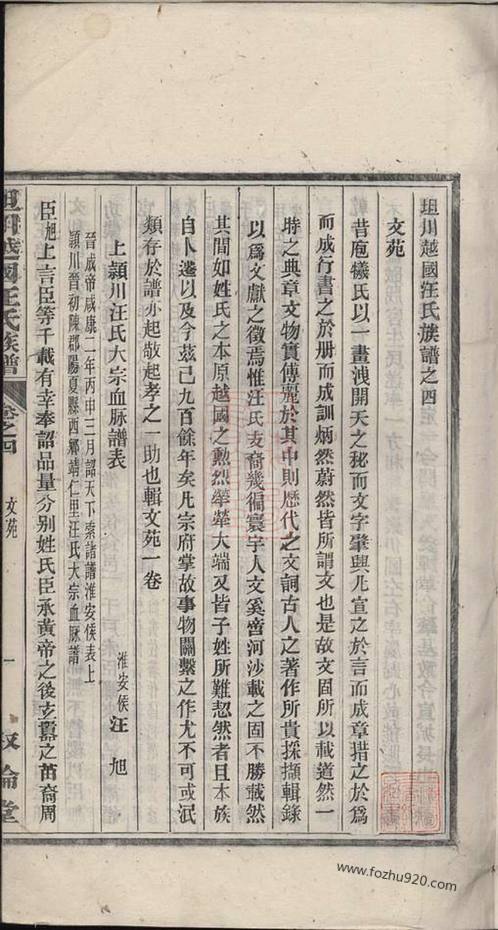 坦川越國汪氏族譜之四
文苑
昔庖犧氏以一畫洩開天之秘而文字肇興凡宣之於言而成章措之於爲
而成行書之於册而成訓炳然蔚然皆所謂文也是故文固所以載道然一
時之典章文物實傳麗於其中則歷代之文詞古人之著作所貴採擷輯錄
以爲文獻之徵焉惟汪氏支裔幾徧寰宇人文奚啻河沙載之固不勝載然
其間如姓氏之本原越國之勲烈犖犖大端又皆子姓所難恝然者且本族
自卜遷以及今茲已九百餘年矣凡宗府掌故事物關繫之作尤不可或泯
類存於譜亦起敬起孝之一助也輯文苑一卷
上潁川汪氏大宗血脉譜表
淮安侯汪旭
晉成帝咸康二年丙申三月詔天下索諸譜淮安侯表上
潁川晉初陳郡陽夏縣西鄉靖仁里汪氏大宗血脉譜
臣旭上言臣等千載有幸奉詔品量分别姓氏臣承黄帝之後玄囂之苗裔周
坦川越國汪氏族譜
卷之四
文苑
一
敘倫堂
www.fozhu920.com